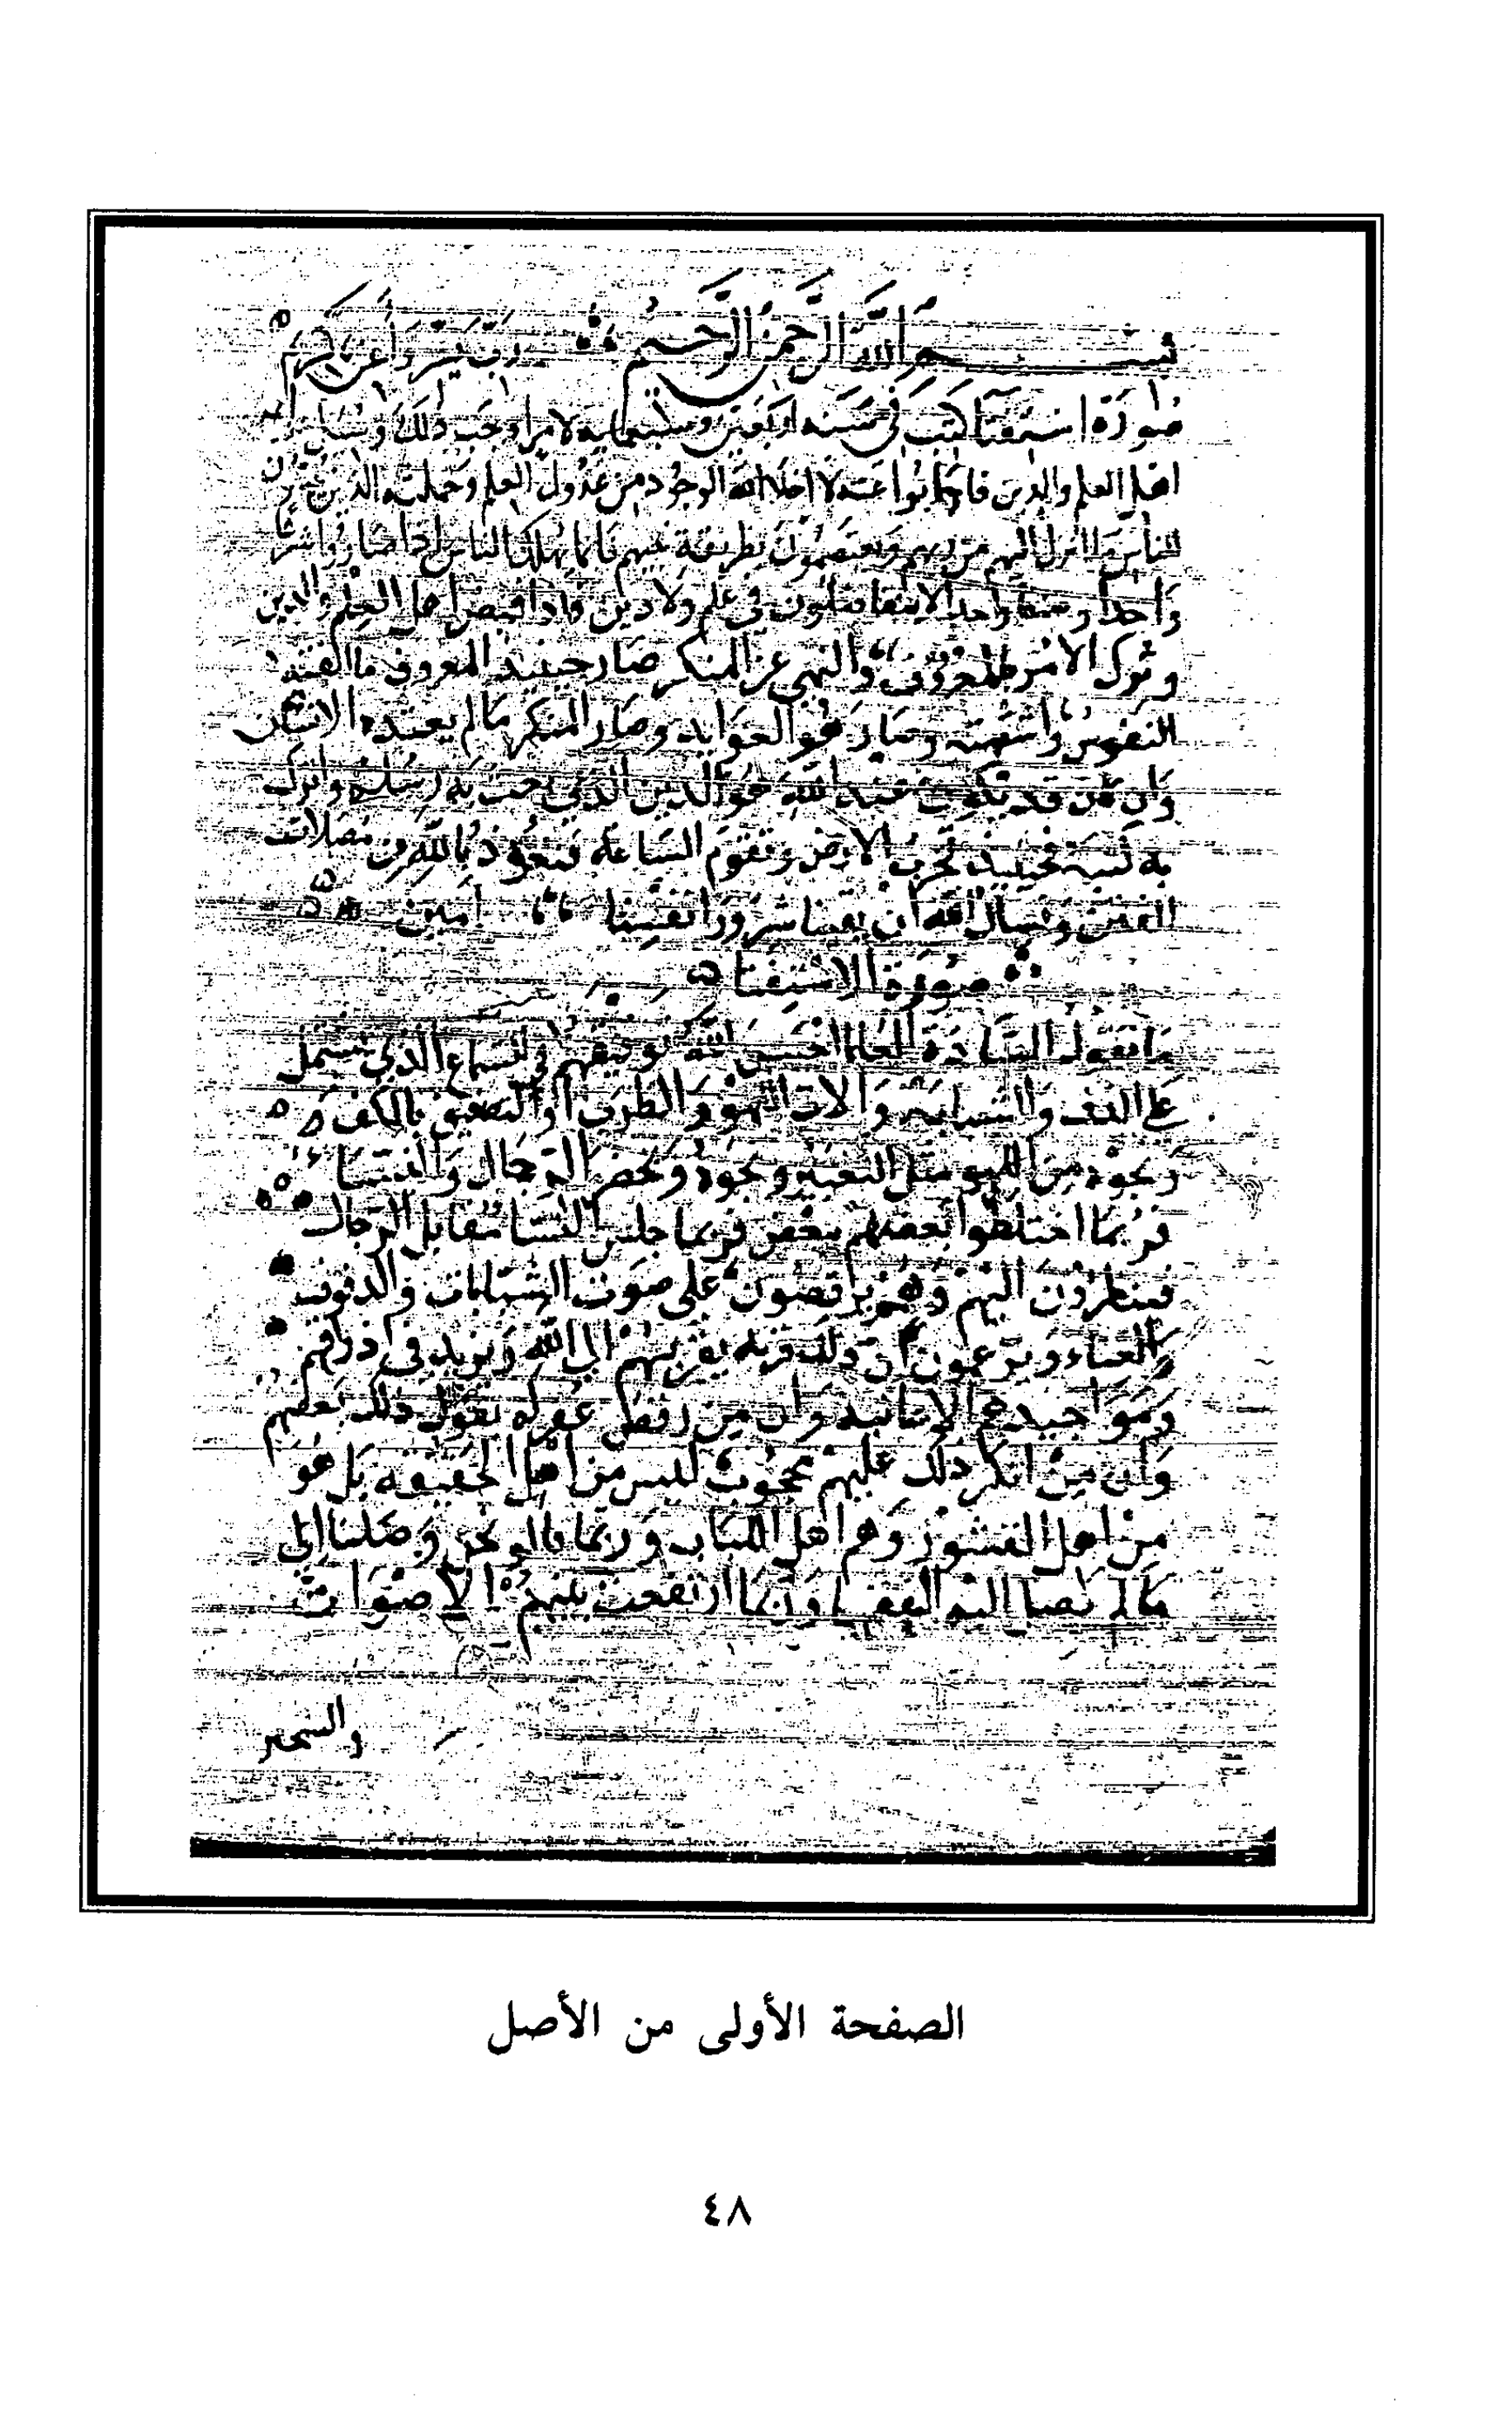 بسم الله الرحمن الرحيم رب يسر واعن يا كريم
صورة استفتا كتب في سنة اربعين وسبعمايه لامر اوجب ذلك وسئل
اهل العلم والدين فاجابوا عنه لا اخلا الله الوجود من عدول العلم وحملته الذين
للناس ما انزل اليهم من ربهم ويعتصمون بطريقة نبيهم فانما يهلك الناس اذا صاروا
واحدا وصنفا واحدا لا يتفاضلون في علم ولا دين فاذا قبض اهل العلم والدين
وترك الامر بالمعروف والنهي عن المنكر صار حينئذ المعروف ما الفته
النفوس واشتهته وصار هو العوايد وصار المنكر ما لم يعتده الانسان
وان كان قد يكون عند الله هو الدين الذي بعث به رسله وانزل
به كتبه فحينئذ تخرب الارض وتقوم الساعة فنعوذ بالله من مضلات
الفتن ونسال الله ان يقينا شرور انفسنا امين
صورة الاستفتا
ما تقول السادة العلما احسن الله توفيقهم في السماع الذي يشتمل
على الدف والشبابه والات اللهو والطرب او التصفيق بالكف
ونحوه من اللهو مثل التغبير ونحوه ويحضر الرجال والنساء
فربما اختلطوا بعضهم ببعض فربما جلس النسا مقابل الرجال
فينظرون اليهم وهم يرقصون على صوت الشبابات والدفوف
والغناء ويزعمون ان ذلك قربه يقربهم الى الله ويزيد في اذواقهم
ومواجيدهم الايمانيه وان من رقص غفر له بقول ذلك بعضهم
وان من انكر ذلك عليهم محجوب ليس من اهل الحقيقه بل هو
من اهل القشور وهم اهل اللباب وربما قالوا نحن وصلنا الى
ما لم تصل اليه الفقها وربما ارتفعت بينهم الاصوات
والشخير
الصفحة الأولى من الأصل
٤٨